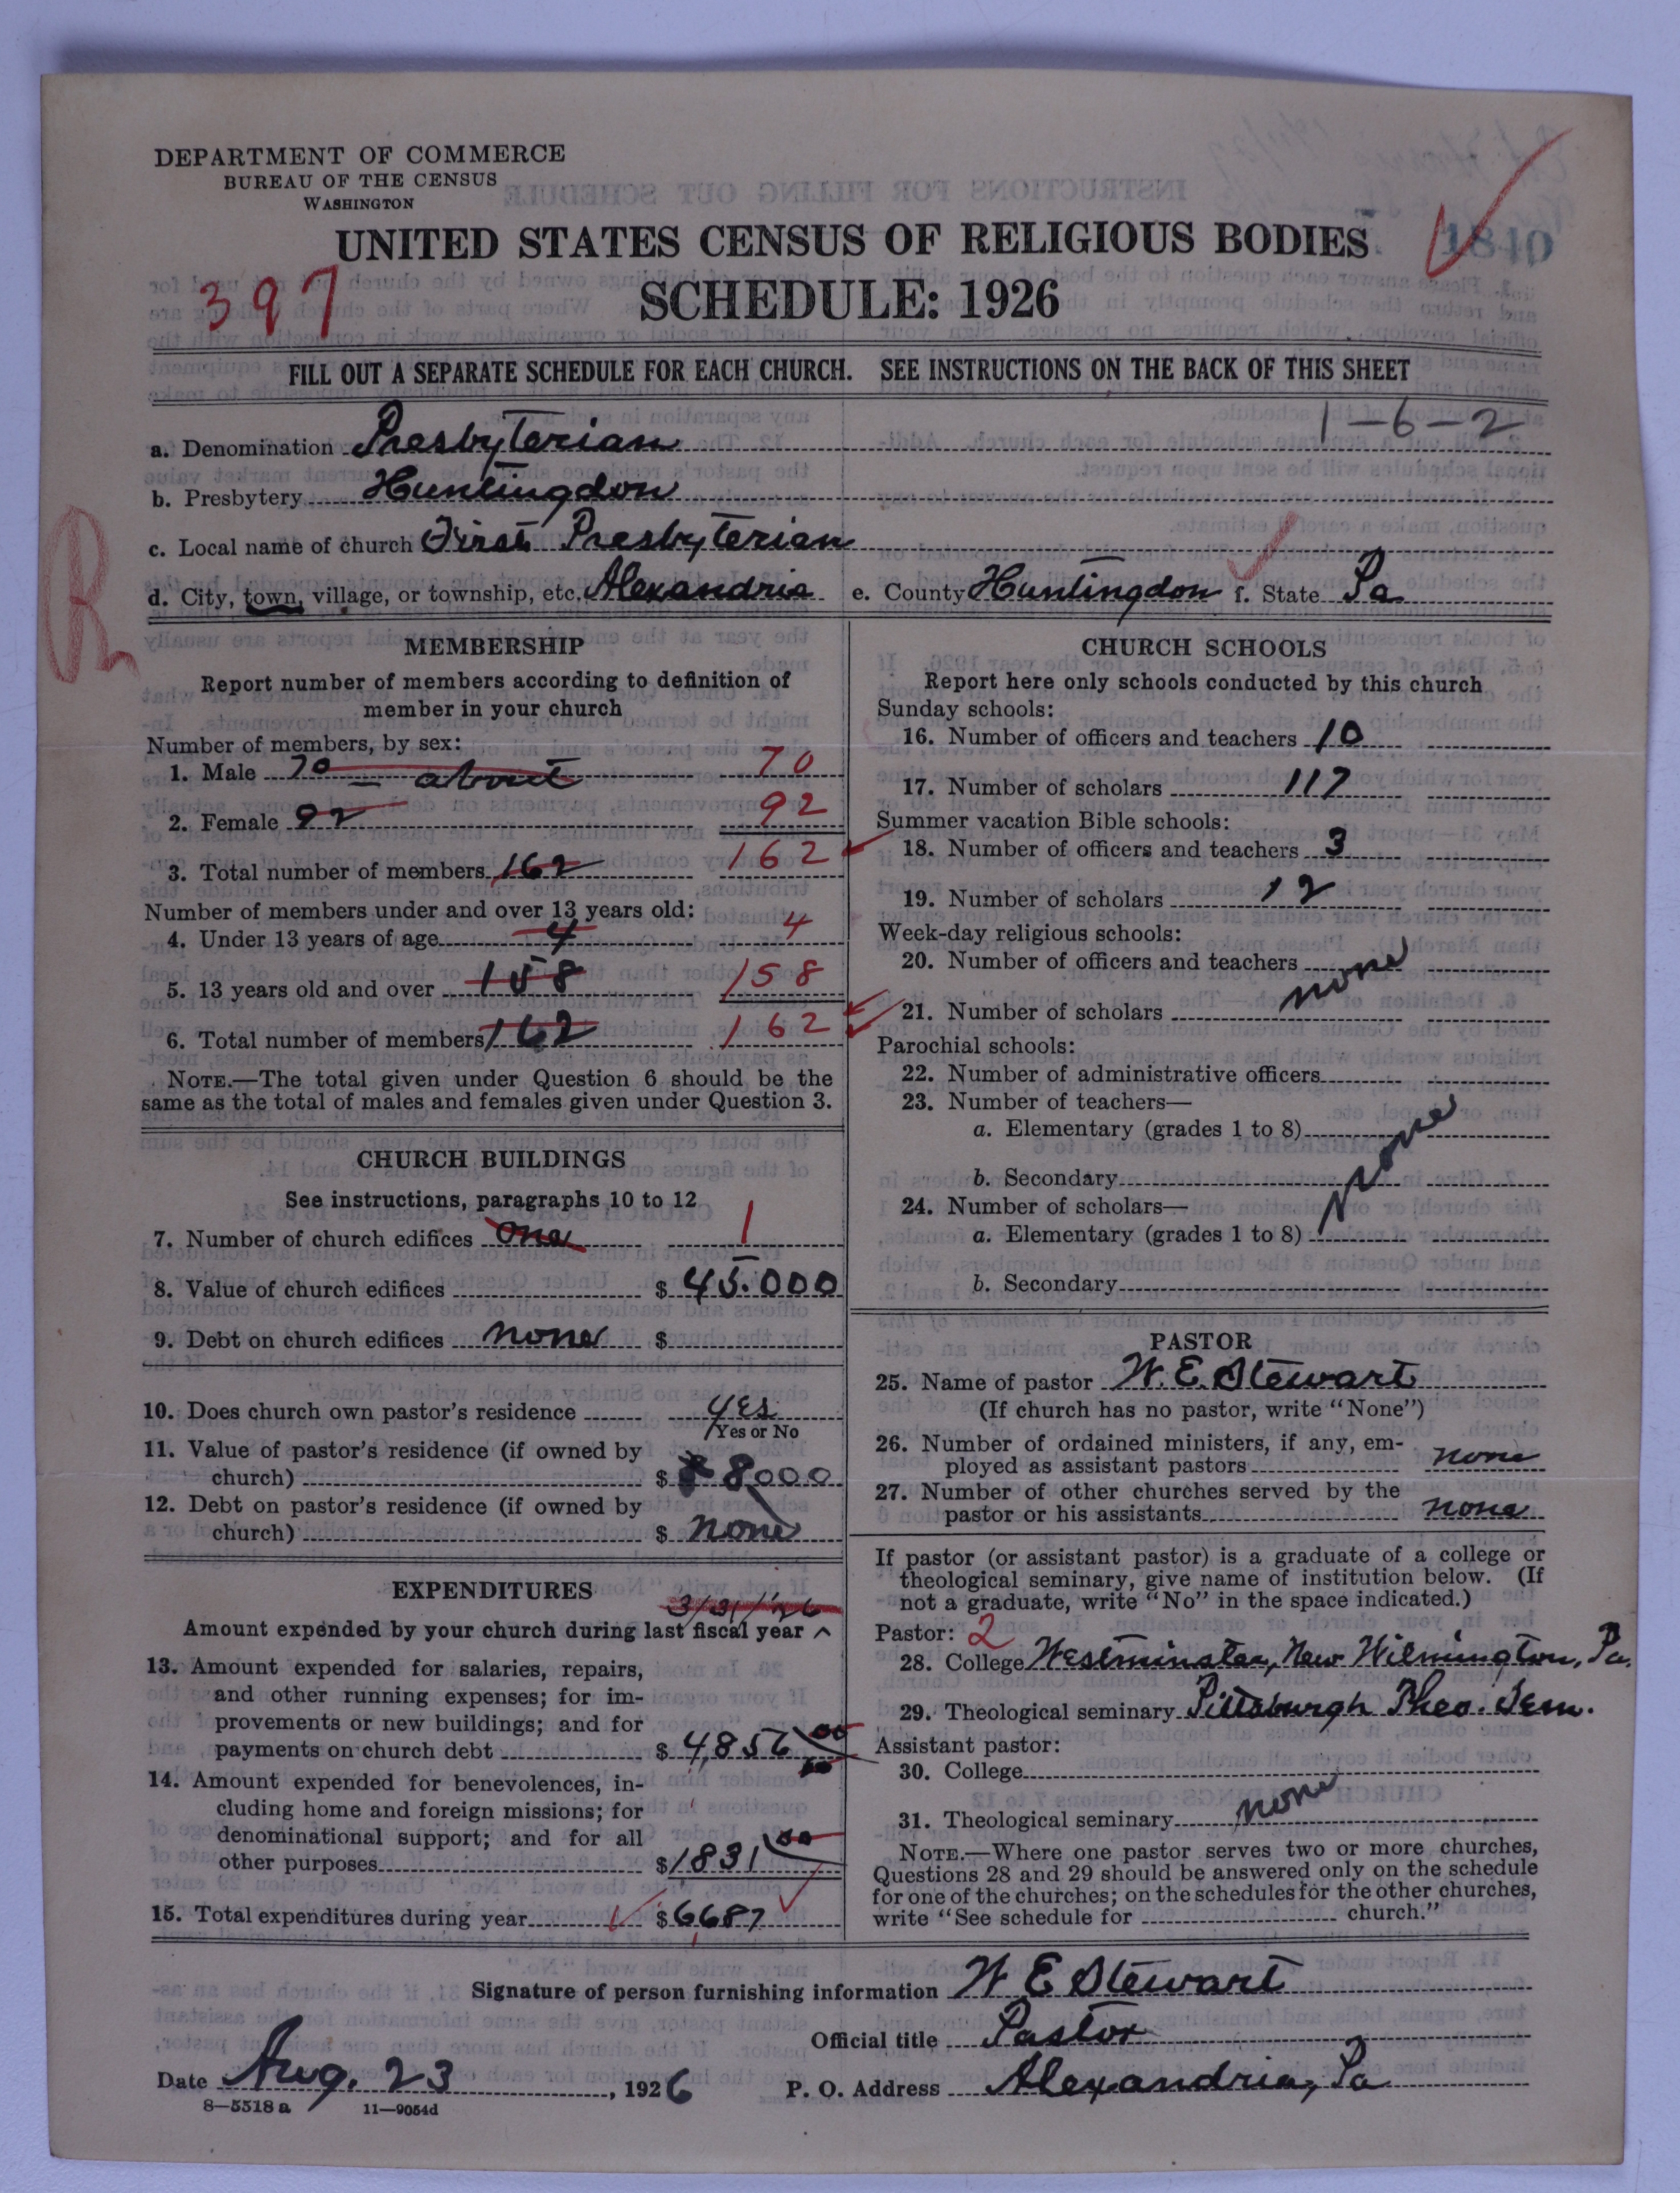 DEPARTMENT OF COMMERCE
BUREAU OF THE CENSUS
WASHINGTON
1840
UNITED STATES CENSUS OF RELIGIOUS BODIES
397
SCHEDULE: 1926
FILL OUT A SEPARATE SCHEDULE FOR EACH CHURCH. SEE INSTRUCTIONS ON THE BACK OF THIS SHEET
1-6-2
a. Denomination Presbyterian
b. Presbytery Huntingdon
c. Local name of church First Presbyterian
d. City, town, village, or township, etc. Alexandria e. County Huntingdon f. State Pa
R
MEMBERSHIP
Report number of members according to definition of
member in your church
Number of members, by sex:
1. Male 70 - about 70
2. Female 92 92
3. Total number of members 162 162
Number of members under and over 13 years old:
4. Under 13 years of age 4 4
5. 13 years old and over 158 158
6. Total number of members 162 162
NOTE.—The total given under Question 6 should be the
same as the total of males and females given under Question 3.
CHURCH BUILDINGS
See instructions, paragraphs 10 to 12
7. Number of church edifices one 1
8. Value of church edifices $ 45.000
9. Debt on church edifices none $
10. Does church own pastor's residence yes
Yes or No
11. Value of pastor's residence (if owned by
church) $ 8000
12. Debt on pastor's residence (if owned by
church) $ none
EXPENDITURES
3/31/26
Amount expended by your church during last fiscal year ^
13. Amount expended for salaries, repairs,
and other running expenses; for im-
provements or new buildings; and for
payments on church debt $ 4,856 00
14. Amount expended for benevolences, in-
cluding home and foreign missions; for
denominational support; and for all
other purposes $ 1831 00
15. Total expenditures during year $ 6687
CHURCH SCHOOLS
Report here only schools conducted by this church
Sunday schools:
16. Number of officers and teachers 10
17. Number of scholars 117
Summer vacation Bible schools:
18. Number of officers and teachers 3
19. Number of scholars 12
Week-day religious schools:
20. Number of officers and teachers
none
21. Number of scholars
Parochial schools:
22. Number of administrative officers
23. Number of teachers—
a. Elementary (grades 1 to 8)
none
b. Secondary
24. Number of scholars—
a. Elementary (grades 1 to 8)
b. Secondary
PASTOR
25. Name of pastor W. E. Stewart
(If church has no pastor, write "None")
26. Number of ordained ministers, if any, em-
ployed as assistant pastors none
27. Number of other churches served by the
pastor or his assistants none
If pastor (or assistant pastor) is a graduate of a college or
theological seminary, give name of institution below. (If
not a graduate, write "No" in the space indicated.)
Pastor: 2
28. College Westminster, New Wilmington, Pa.
29. Theological seminary Pittsburgh Theo. Sem.
Assistant pastor:
30. College
none
31. Theological seminary
NOTE.—Where one pastor serves two or more churches,
Questions 28 and 29 should be answered only on the schedule
for one of the churches; on the schedules for the other churches,
write "See schedule for church."
Signature of person furnishing information W E Stewart
Official title Pastor
Date Aug. 23, 1926 P. O. Address Alexandria, Pa
8—5518 a 11—9054d